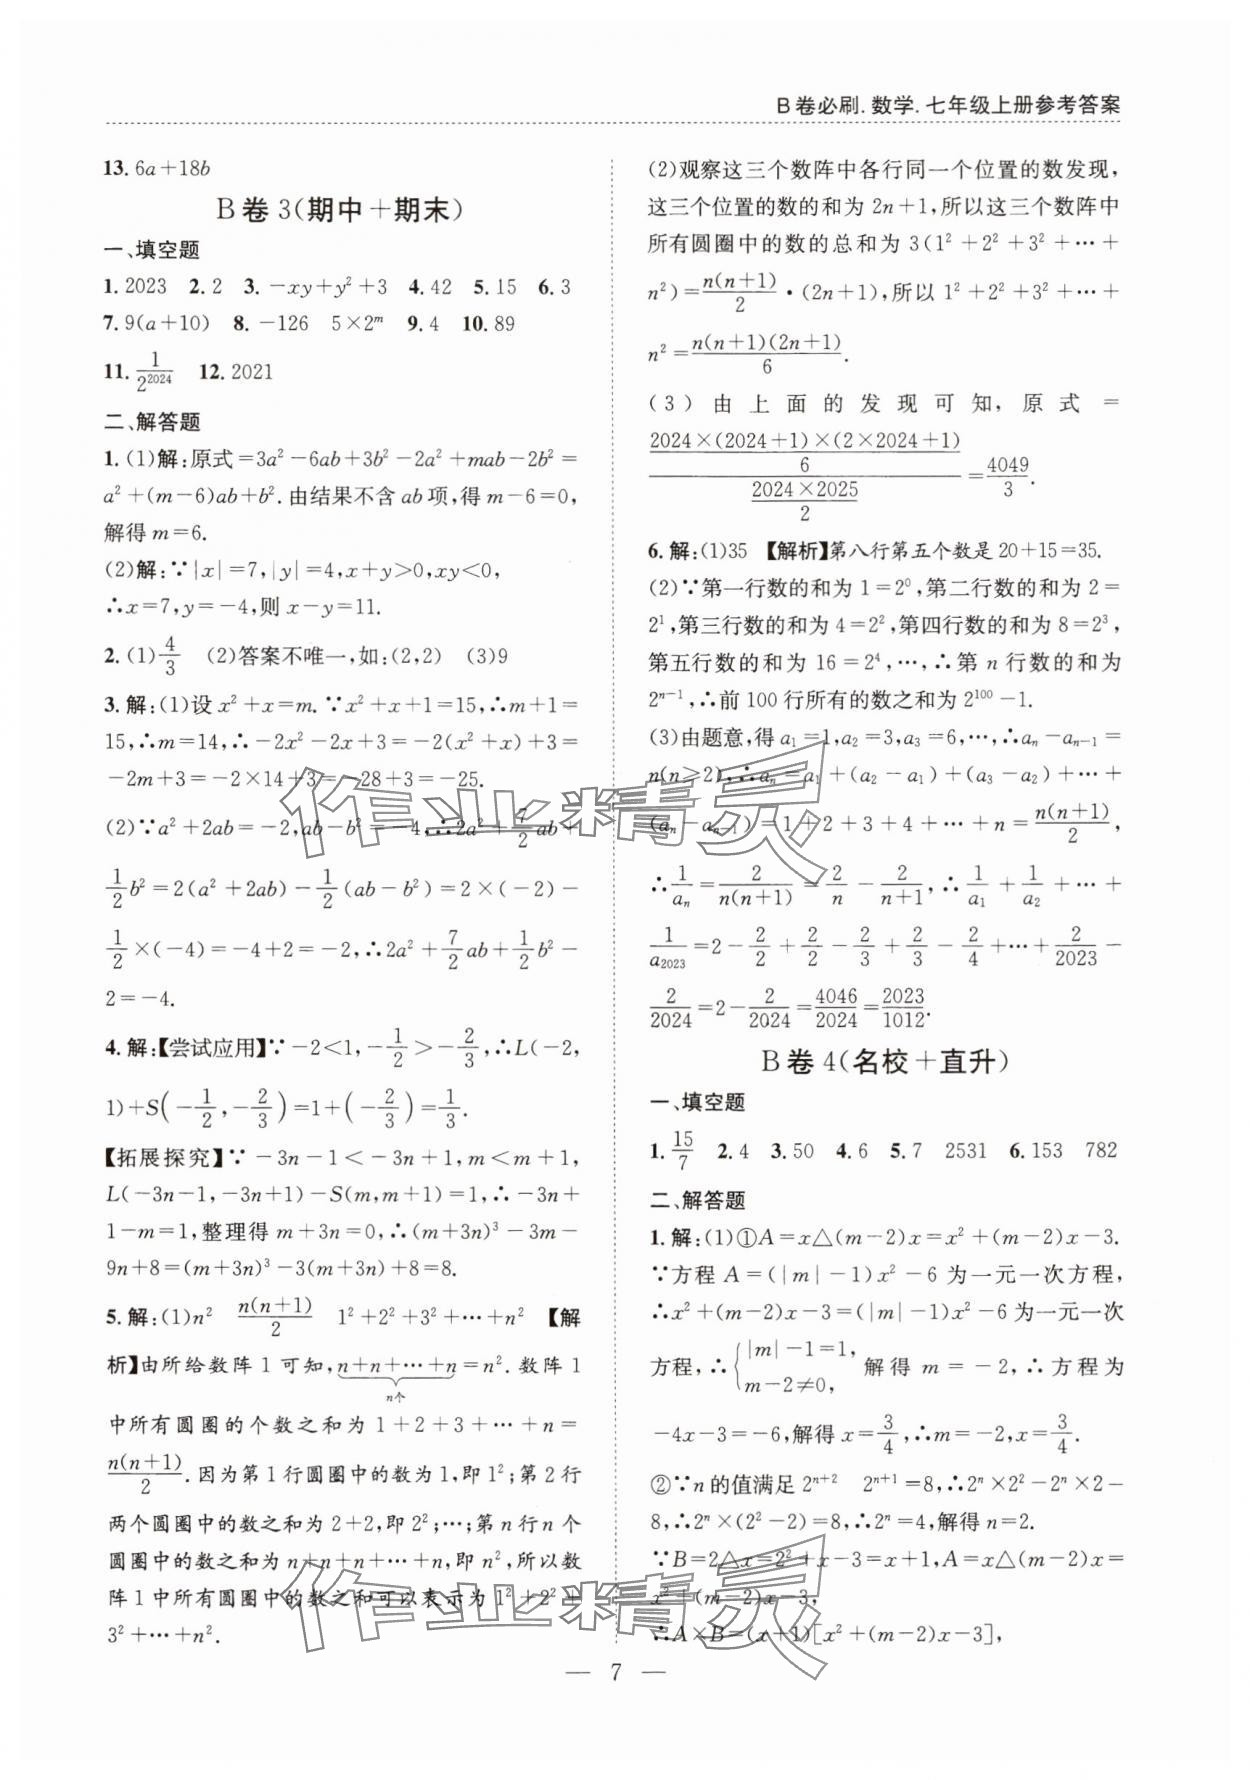 B卷必刷.数学.七年级上册参考答案
13. 6a+18b
B卷3(期中+期末)
一、填空题
1. 2023 2. 2 3. -xy+y²+3 4. 42 5. 15 6. 3
7. 9(a+10) 8. -126 5×2^m 9. 4 10. 89
11. 1/2^2024 12. 2021
二、解答题
1. (1)解:原式=3a²-6ab+3b²-2a²+mab-2b²=
a²+(m-6)ab+b².由结果不含ab项,得m-6=0,
解得m=6.
(2)解:∵|x|=7,|y|=4,x+y>0,xy<0,
∴x=7,y=-4,则x-y=11.
2. (1)4/3 (2)答案不唯一,如:(2,2) (3)9
3. 解:(1)设x²+x=m.∵x²+x+1=15,∴m+1=
15,∴m=14,∴-2x²-2x+3=-2(x²+x)+3=
-2m+3=-2×14+3=-28+3=-25.
(2)∵a²+2ab=-2,ab-b²=-4,∴2a²+7/2 ab+
1/2 b²=2(a²+2ab)-1/2(ab-b²)=2×(-2)-
1/2×(-4)=-4+2=-2,∴2a²+7/2 ab+1/2 b²-
2=-4.
4. 解:【尝试应用】∵-2<1,-1/2>-2/3,∴L(-2,
1)+S(-1/2,-2/3)=1+(-2/3)=1/3.
【拓展探究】∵-3n-1<-3n+1,m<m+1,
L(-3n-1,-3n+1)-S(m,m+1)=1,∴-3n+
1-m=1,整理得m+3n=0,∴(m+3n)³-3m-
9n+8=(m+3n)³-3(m+3n)+8=8.
5. 解:(1)n² n(n+1)/2 1²+2²+3²+…+n² 【解
析】由所给数阵1可知,n+n+…+n=n².数阵1
n个
中所有圆圈的个数之和为1+2+3+…+n=
n(n+1)/2.因为第1行圆圈中的数为1,即1²;第2行
两个圆圈中的数之和为2+2,即2²;…;第n行n个
圆圈中的数之和为n+n+n+…+n,即n²,所以数
阵1中所有圆圈中的数之和可以表示为1²+2²+
3²+…+n².
(2)观察这三个数阵中各行同一个位置的数发现,
这三个位置的数的和为2n+1,所以这三个数阵中
所有圆圈中的数的总和为3(1²+2²+3²+…+
n²)=n(n+1)/2·(2n+1),所以1²+2²+3²+…+
n²=n(n+1)(2n+1)/6.
(3)由上面的发现可知,原式=
[2024×(2024+1)×(2×2024+1)/6]/[2024×2025/2]=4049/3.
6. 解:(1)35 【解析】第八行第五个数是20+15=35.
(2)∵第一行数的和为1=2⁰,第二行数的和为2=
2¹,第三行数的和为4=2²,第四行数的和为8=2³,
第五行数的和为16=2⁴,…,∴第n行数的和为
2^(n-1),∴前100行所有的数之和为2^100-1.
(3)由题意,得a₁=1,a₂=3,a₃=6,…,∴aₙ-aₙ₋₁=
n(n≥2),∴aₙ=a₁+(a₂-a₁)+(a₃-a₂)+…+
(aₙ-aₙ₋₁)=1+2+3+4+…+n=n(n+1)/2,
∴1/aₙ=2/n(n+1)=2/n-2/(n+1),∴1/a₁+1/a₂+…+
1/a₂₀₂₃=2-2/2+2/2-2/3+2/3-2/4+…+2/2023-
2/2024=2-2/2024=4046/2024=2023/1012.
B卷4(名校+直升)
一、填空题
1. 15/7 2. 4 3. 50 4. 6 5. 7 2531 6. 153 782
二、解答题
1. 解:(1)①A=x△(m-2)x=x²+(m-2)x-3.
∵方程A=(|m|-1)x²-6为一元一次方程,
∴x²+(m-2)x-3=(|m|-1)x²-6为一元一次
方程,∴{|m|-1=1, m-2≠0, 解得m=-2,∴方程为
-4x-3=-6,解得x=3/4,∴m=-2,x=3/4.
②∵n的值满足2^(n+2) 2^(n+1)=8,∴2^n×2²-2^n×2-
8,∴2^n×(2²-2)=8,∴2^n=4,解得n=2.
∵B=2△x=2²+x-3=x+1,A=x△(m-2)x=
x²+(m-2)x-3,
∴A×B=(x+1)[x²+(m-2)x-3],
— 7 —
作业精灵
作业精灵